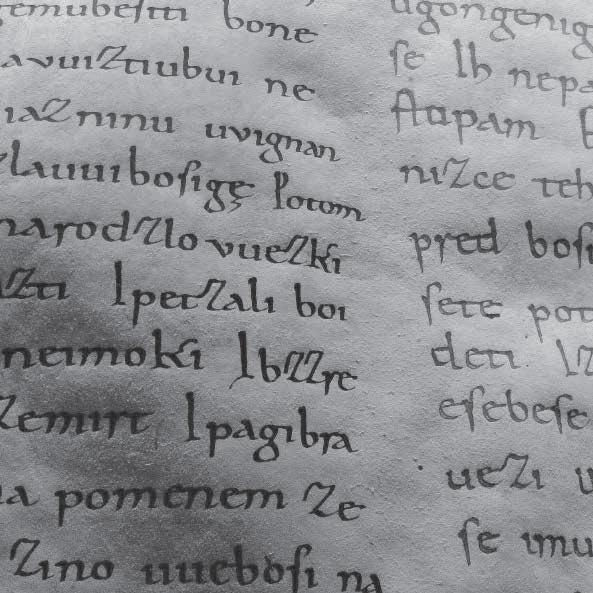 gemubeſiti bone
avuiztiubui ne
iazninu uvignan
zlauuiboſigę Potom
narodzlo vuezki
zti Ipetzali boi
neimoki Ibzzre
zemirt Ipagibra
a pomenem ze
zino uueboſi na
ugongenig
ſe Ih nepa
ſtapam
nizce teh
pred boſi
ſete pot
deti Iz
eſebeſe
uezi u
ſe imu